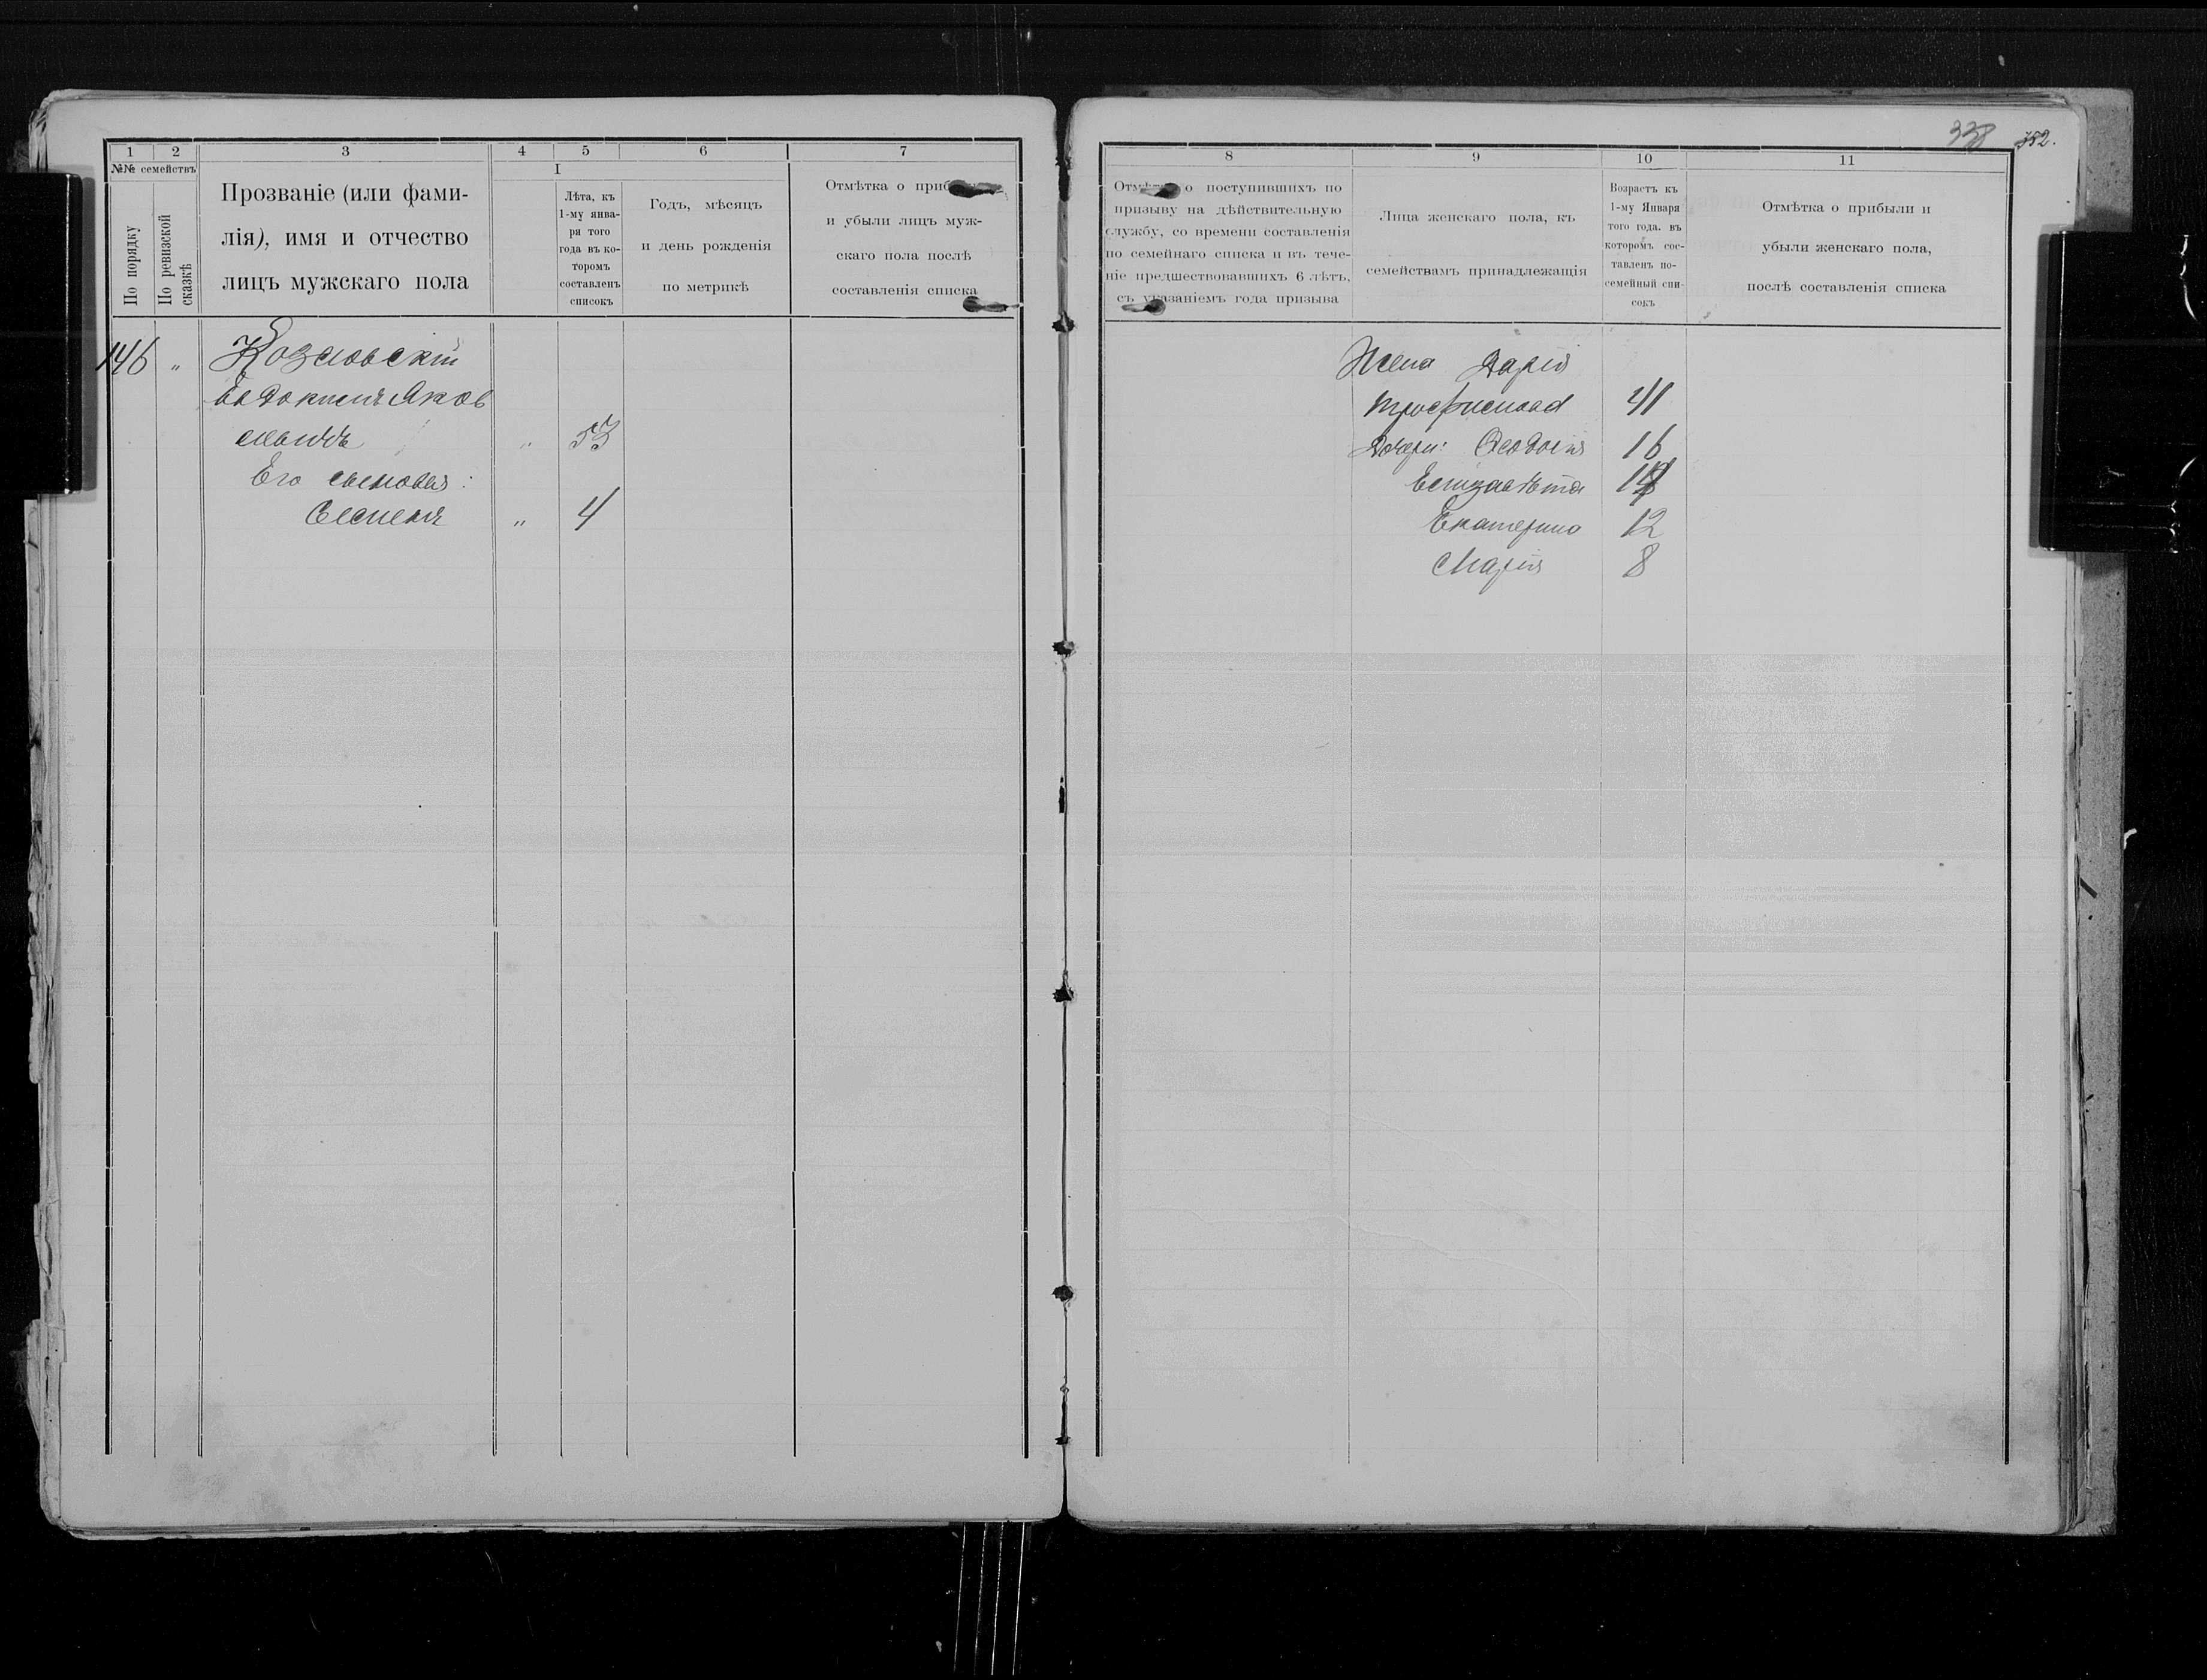 1 2 3 4 5 6 7
№№ семействъ
I
По порядку
По ревизской
сказкѣ
Прозваніе (или фами-
лія), имя и отчество
лицъ мужскаго пола
Лѣта, къ
1-му янва-
ри того
года въ ко-
торомъ
составленъ
списокъ
Годъ, мѣсяцъ
и день рожденія
по метрикѣ
Отмѣтка о
и убыли лицъ муж-
скаго пола послѣ
составленія списка
146 " Козловскій
Евдокимъ Яков
левичъ " 53
Его сыновья:
Семенъ " 4
338 352.
8 9 10 11
о поступившихъ по
призыву на дѣйствительную
службу, со времени составленія
по семейнаго списка и въ тече-
ніе предшествовавшихъ 6 лѣтъ,
съ указаніемъ года призыва
Лица женскаго пола, къ
семействамъ принадлежащія
Возрастъ къ
1-му Января
того года. въ
которомъ сос-
тавленъ по-
семейный спи-
сокъ
Отмѣтка о прибыли и
убыли женскаго пола,
послѣ составленія списка
Жена Дарія
Трофимова 41
Дочери: Ѳеодосія 16
Елизавѣта
Екатерина 12
Марія 8